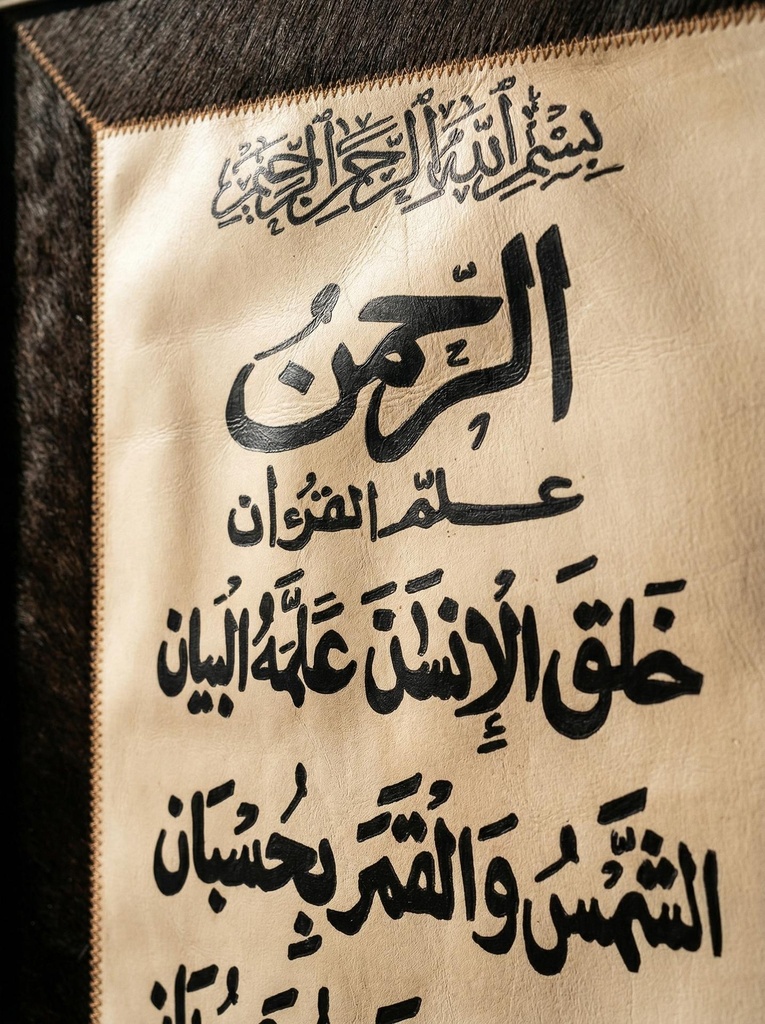 بِسْمِ اللّٰهِ الرَّحْمٰنِ الرَّحِيْمِ
الرَّحمنُ
علّم القرُءان
خَلقَ الْإِنسَٰنَ عَلَّمَهُ الْبَيان
الشَّمْسُ وَالْقَمَرَ بِحُسْبَان